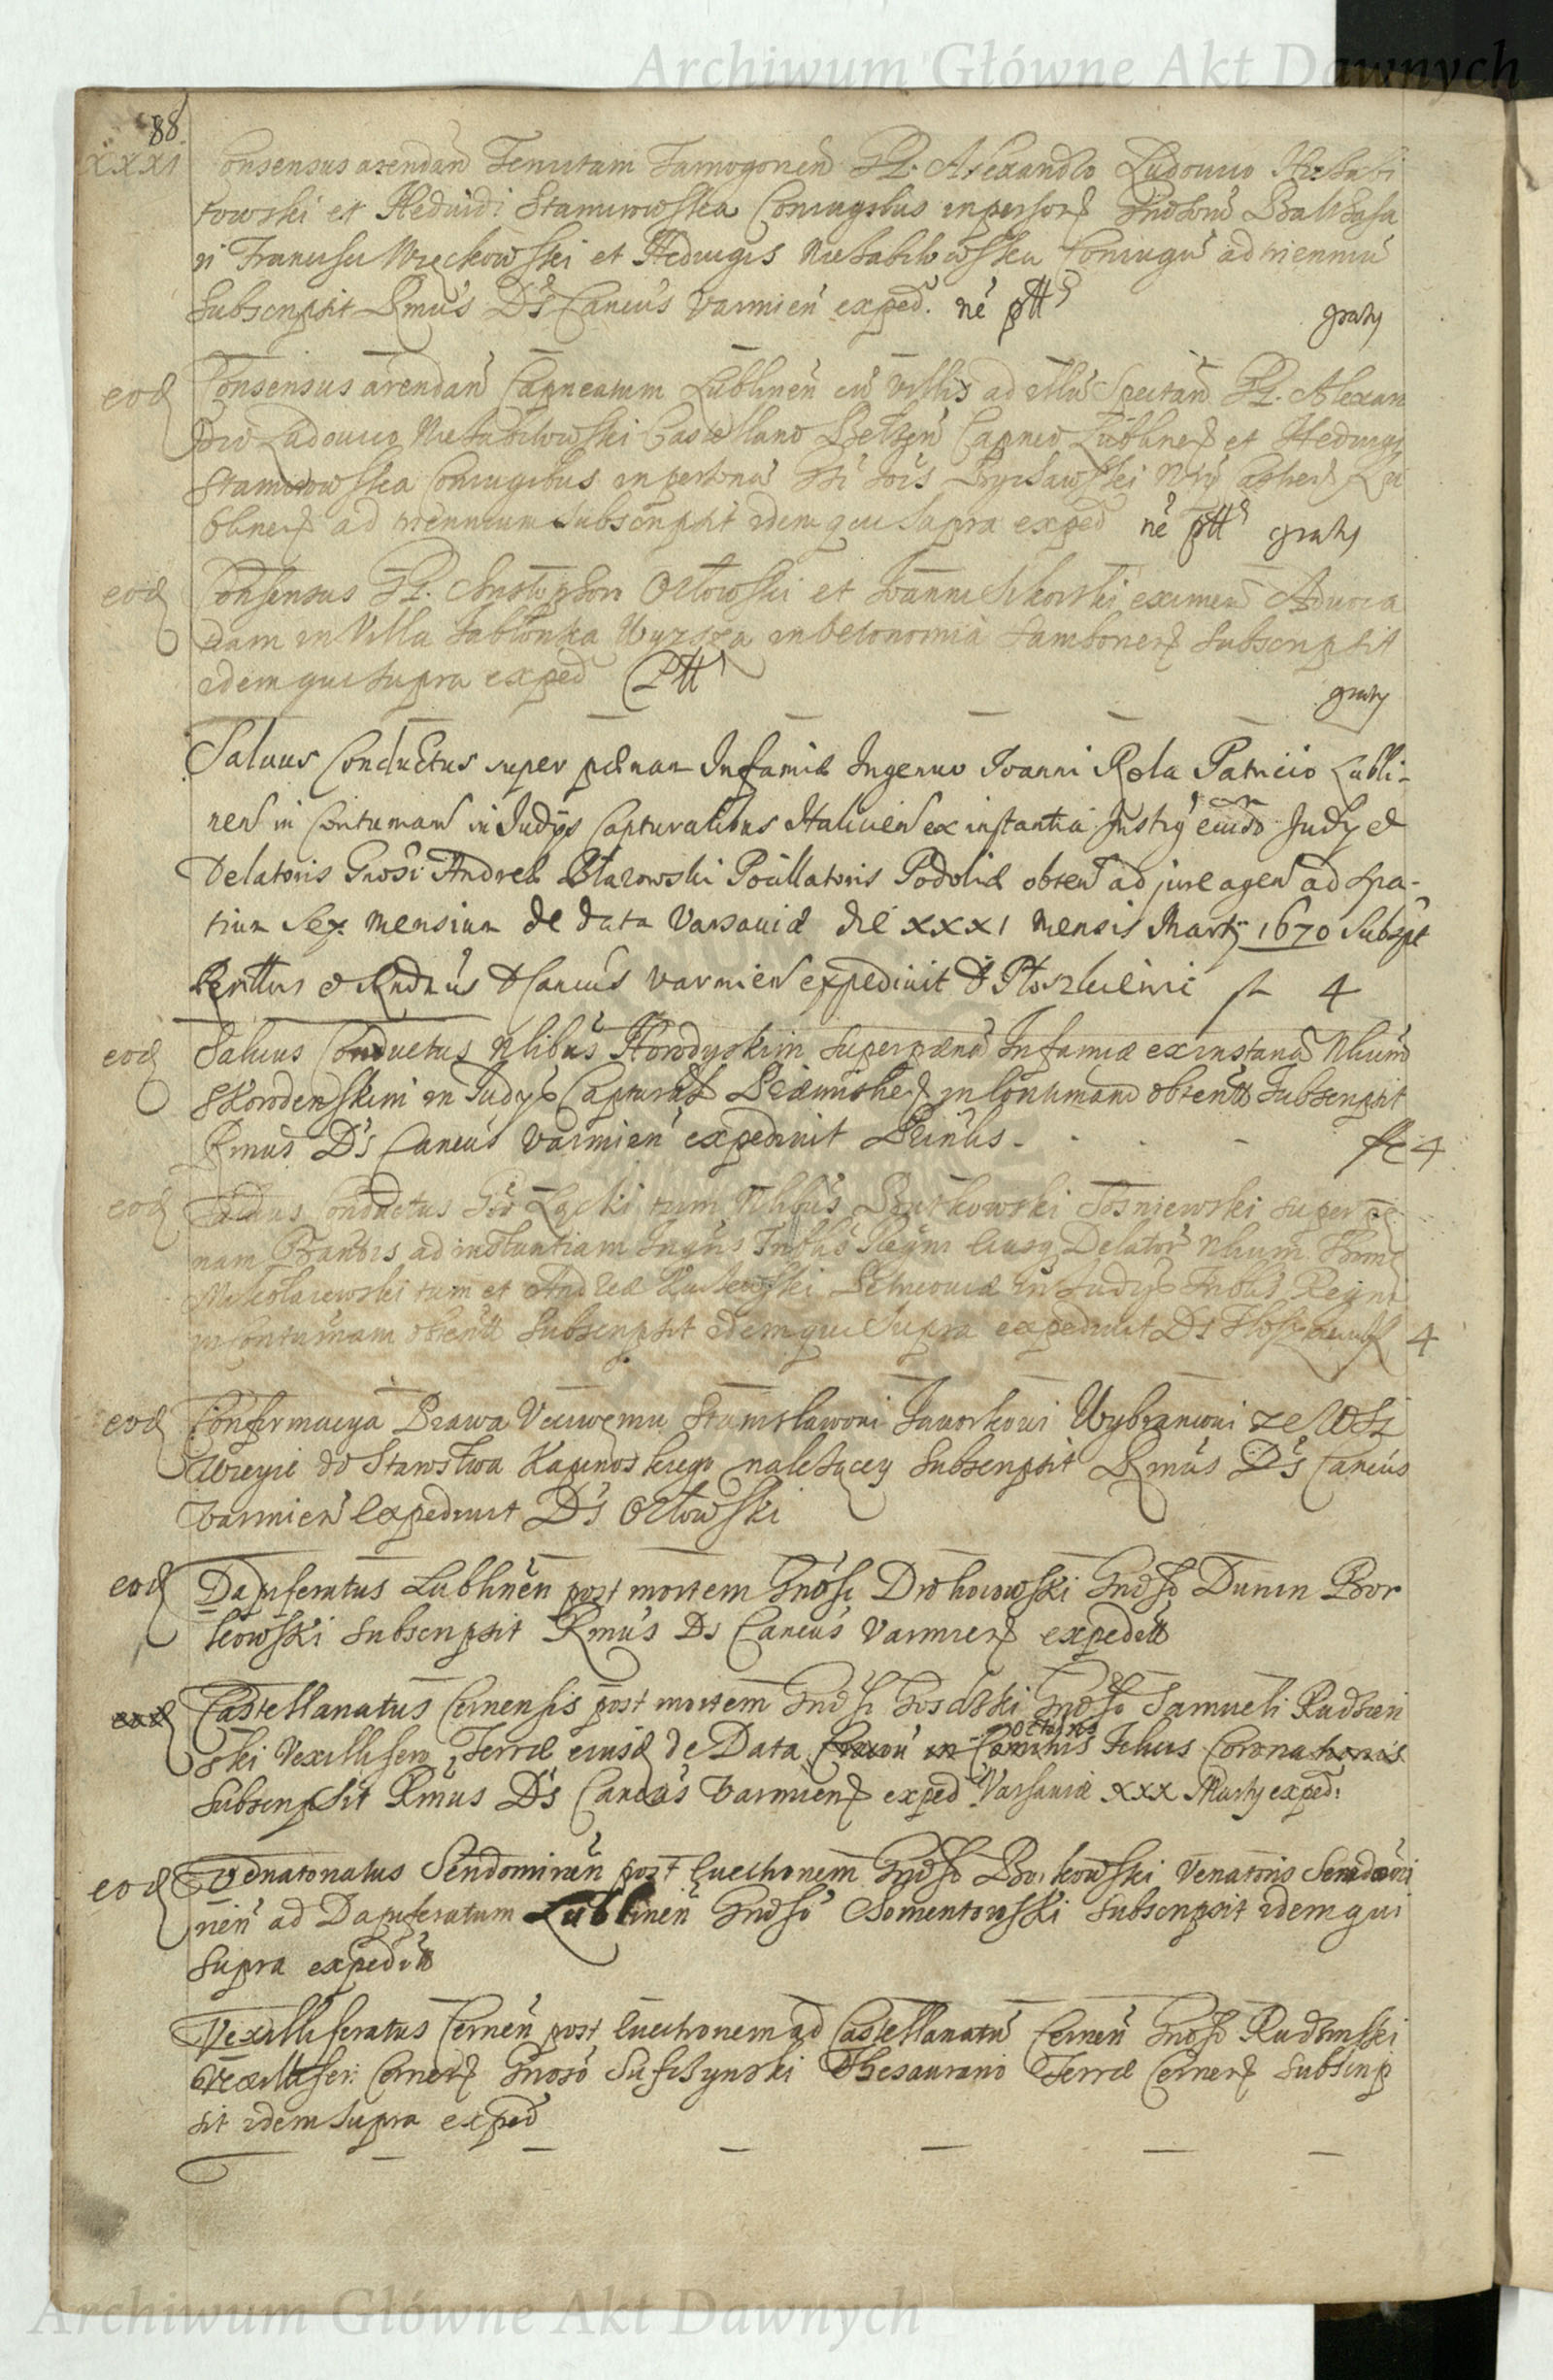 Archiwum Główne Akt Dawnych
88
XXXI Consensus arendand Tenutam Tarnogoren G. Alexandro Ludovico Niezabi
towski et Hedvidi Stanirowska Coniugibus in person Gnosorum Balthasa
ri Francisci Wieckowski et Hedvigis Niezabitowska Coniugu ad trienniu
Subscripsit Rmus Ds Cancus Varmien exped. ne ptt gratis
eod Consensus arendand Capneatum Lublinen cu villis ad illu Spectan G. Alexan
dro Ludovico Niezabitowski Castellano Belzen Capneo Lublinen et Hedvigi
Stanirowska Coniugibus in persona Gsi Jois ad triennium Subscripsit idem qui supra exped ne ptt gratis
eod Consensus G. Christophori Orłowski et Joanni Sikorski eximen Advoca
tiam in Villa Jabłonka Wyzsza in Oeconomia Samborien Subscripsit
idem qui supra exped Ptt
gratis
Salvus Conductus super pænam Infamiæ Ingenuo Joanni Rola Patricio Lubli-
nen in Contumam in Judijs Capturalibus Halicien ex instantia Instig eiusd Judy et
Delatoris Gnosi Andreæ Błazowski Pocillatoris Podoliæ obten ad jure agen ad spa-
tium Sex mensium de data Varsaviæ die XXXI mensis Marty 1670 Subspt
Rexttus et Rndus Cancus Varmien expedivit D Ploszkiewic fl 4
eod Salvus Conductus Nlibus Horodyskim super pæna Infamiæ ex instana Nlium
Skorodenskim in Judys Captural Præmislien in Contumam obtentt Subscripsit
Rmus Ds Cancus Varmien expedivit Prinus - fl 4
eod Salvus Conductus Gso Lącki tum Nlibus Brutkowski Tosniewski super pæ
nam Bannis ad instantiam Ingnis Trblis Regni eiusq Delator Nlium
Mikołaiewski tum et Andreæ in Judys Trblis Regni
in Contumam obtentt Subscripsit idem qui Supra expedivit Ds 4
eod Confirmacya Prawa Uczciwemu Stanisławowi Jaworkowi Wybrancowi ze Wsi
do Starostwa Kapinoskiego nalezącey Subscripsit Rmus Ds Cancus
Varmien expedivit Ds Orłowski
eod Dapiferatus Lublinen post mortem Gnosi Drohoiowski Gnoso Dunin Bor
kowski Subscripsit Rmus Ds Cancus Varmien expeditt
eod Castellanatus Cernensis post mortem Gnosi Gnoso Samueli Rudzien
ski Vexillifero Terræ eiusd de Data Comitiis Felicis Coronationis
Subscripsit Rmus Ds Cancus Varmien exped Varsaviæ XXX Marty exped:
eod Venatoratus Sendomirien post evectionem Gnoso Borkowski Venatoris Sendomi
rien ad Dapiferatum Lublinen Gnoso Chomentowski Subscripsit idem qui
supra expeditt
Vexilliferatus Cernen post evectionem ad Castellanatu Cernen Gnoso Rudzinski
Vexillifer: Cernen Gnoso Sufczynski Thesaurario Terræ Cernen Subscrip
sit idem supra exped
Archiwum Główne Akt Dawnych